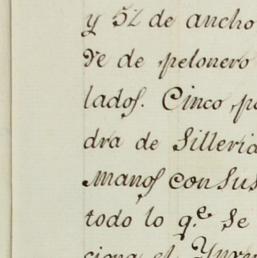 y 52 de ancho
re de pelonero
lados. Cinco
dra de Silleria
Manos con sus
todo lo q.e se
el